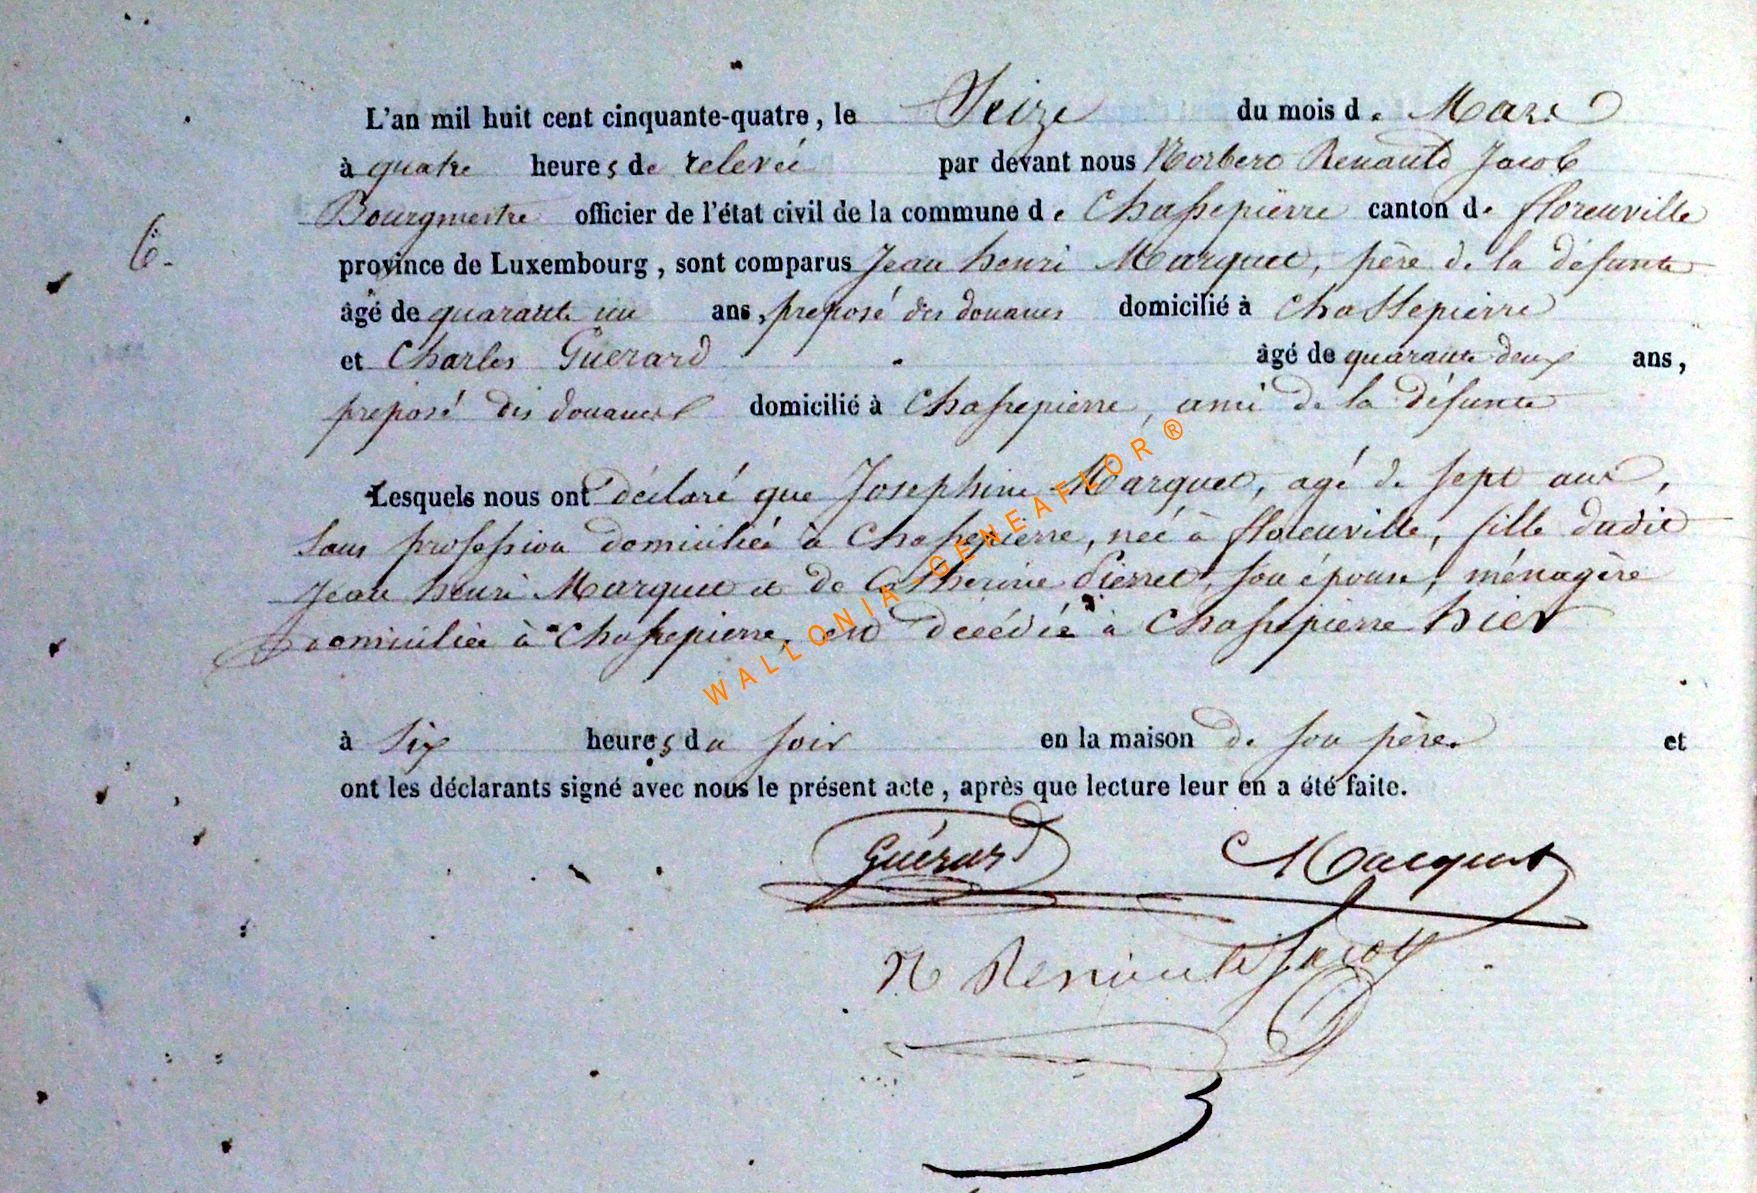 L'an mil huit cent cinquante-quatre, le Seize du mois de Mars
à quatre heures de relevée par devant nous Norbert Renauld Jacob
Bourgmestre officier de l'état civil de la commune de Chassepierre canton de florenville
6.
province de Luxembourg, sont comparus Jean henri Marquet, père de la défunte
âgé de quarante un ans, préposé des douanes domicilié à Chassepierre
et Charles Guerard âgé de quarante deux ans,
préposé des douanes domicilié à Chassepierre, ami de la défunte
Lesquels nous ont déclaré que Josephine Marquet, agé de sept ans,
sans profession domiciliée à Chassepierre, née à florenville, fille dudit
Jean henri Marquet et de Catherine Pierret, son épouse, ménagère
Domiciliée à Chassepierre, est décédée à Chassepierre hier
à six heures du soir en la maison de son père. et
ont les déclarants signé avec nous le présent acte, après que lecture leur en a été faite.
Guérard Marquet
N Renauld Jacob
WALLONIA GENEAFLOR ®